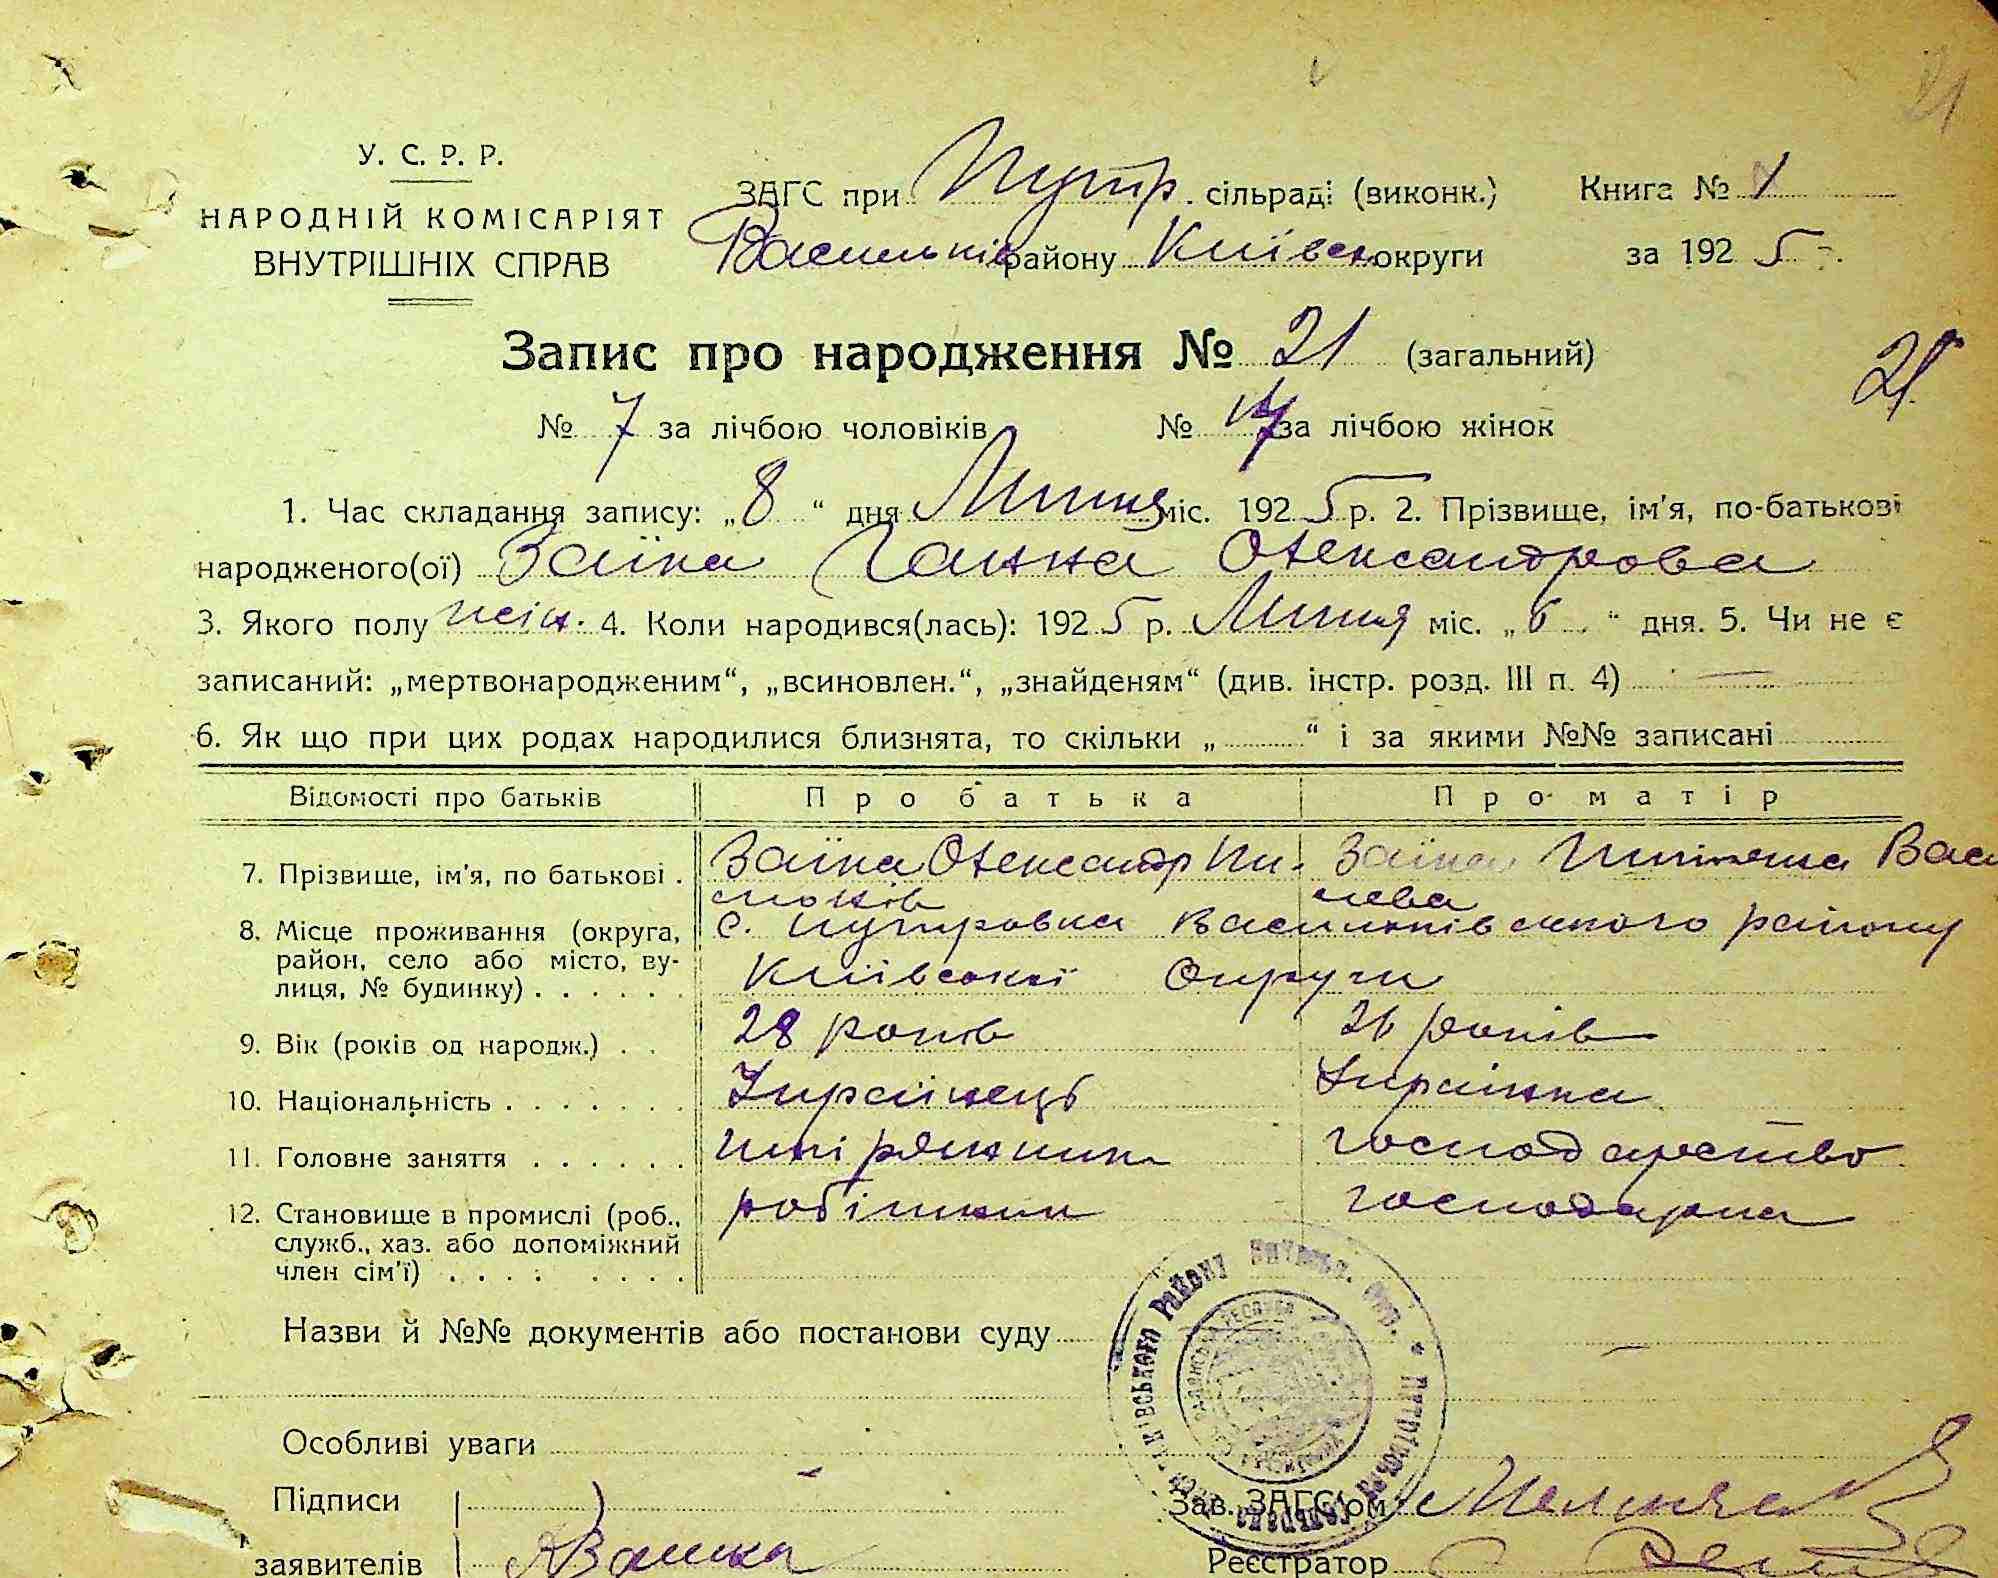 У. С. Р. Р.
НАРОДНІЙ КОМІСАРІЯТ
ВНУТРІШНІХ СПРАВ
ЗАГС при Путр. сільраді (виконк.) Книга № 1
Васильків району Київськ округи за 1925
Запис про народження № 21 (загальний)
21
№ 7 за лічбою чоловіків № 14 за лічбою жінок
1. Час складання запису: „8“ дня Липня міс. 1925 р. 2. Прізвище, ім'я, по-батькові
народженого(ої) Заїка Ганна Олександрова
3. Якого полу жін. 4. Коли народився(лась): 1925 р. Липня міс. „6“ дня. 5. Чи не є
записаний: „мертвонародженим“, „всиновлен.“, „знайденям“ (див. інстр. розд. III п. 4) —
6. Як що при цих родах народилися близнята, то скільки „ “ і за якими №№ записані
Відомості про батьків Про батька Про матір
7. Прізвище, ім'я, по батькові . Заїка Олександр Заїка Васи
лева
8. Місце проживання (округа, район, село або місто, вулиця, № будинку) . . . . . . с. Путровка Васильківського району
Київської Округи
9. Вік (років од народж.) . . 28 років 26 років
10. Національність . . . . . . . Українець Українка
11. Головне заняття . . . . . . господарство
12. Становище в промислі (роб., служб., хаз. або допоміжний член сім'ї) . . . . . . . . робітник господарка
Назви й №№ документів або постанови суду —
Особливі уваги
Підписи
заявителів Заїка
Зав. ЗАГС'ом
Реєстратор